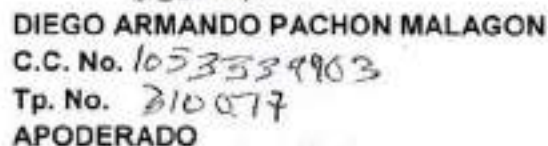 DIEGO ARMANDO PACHON MALAGON
C.C. No. 1053339903
Tp. No. 310077
APODERADO